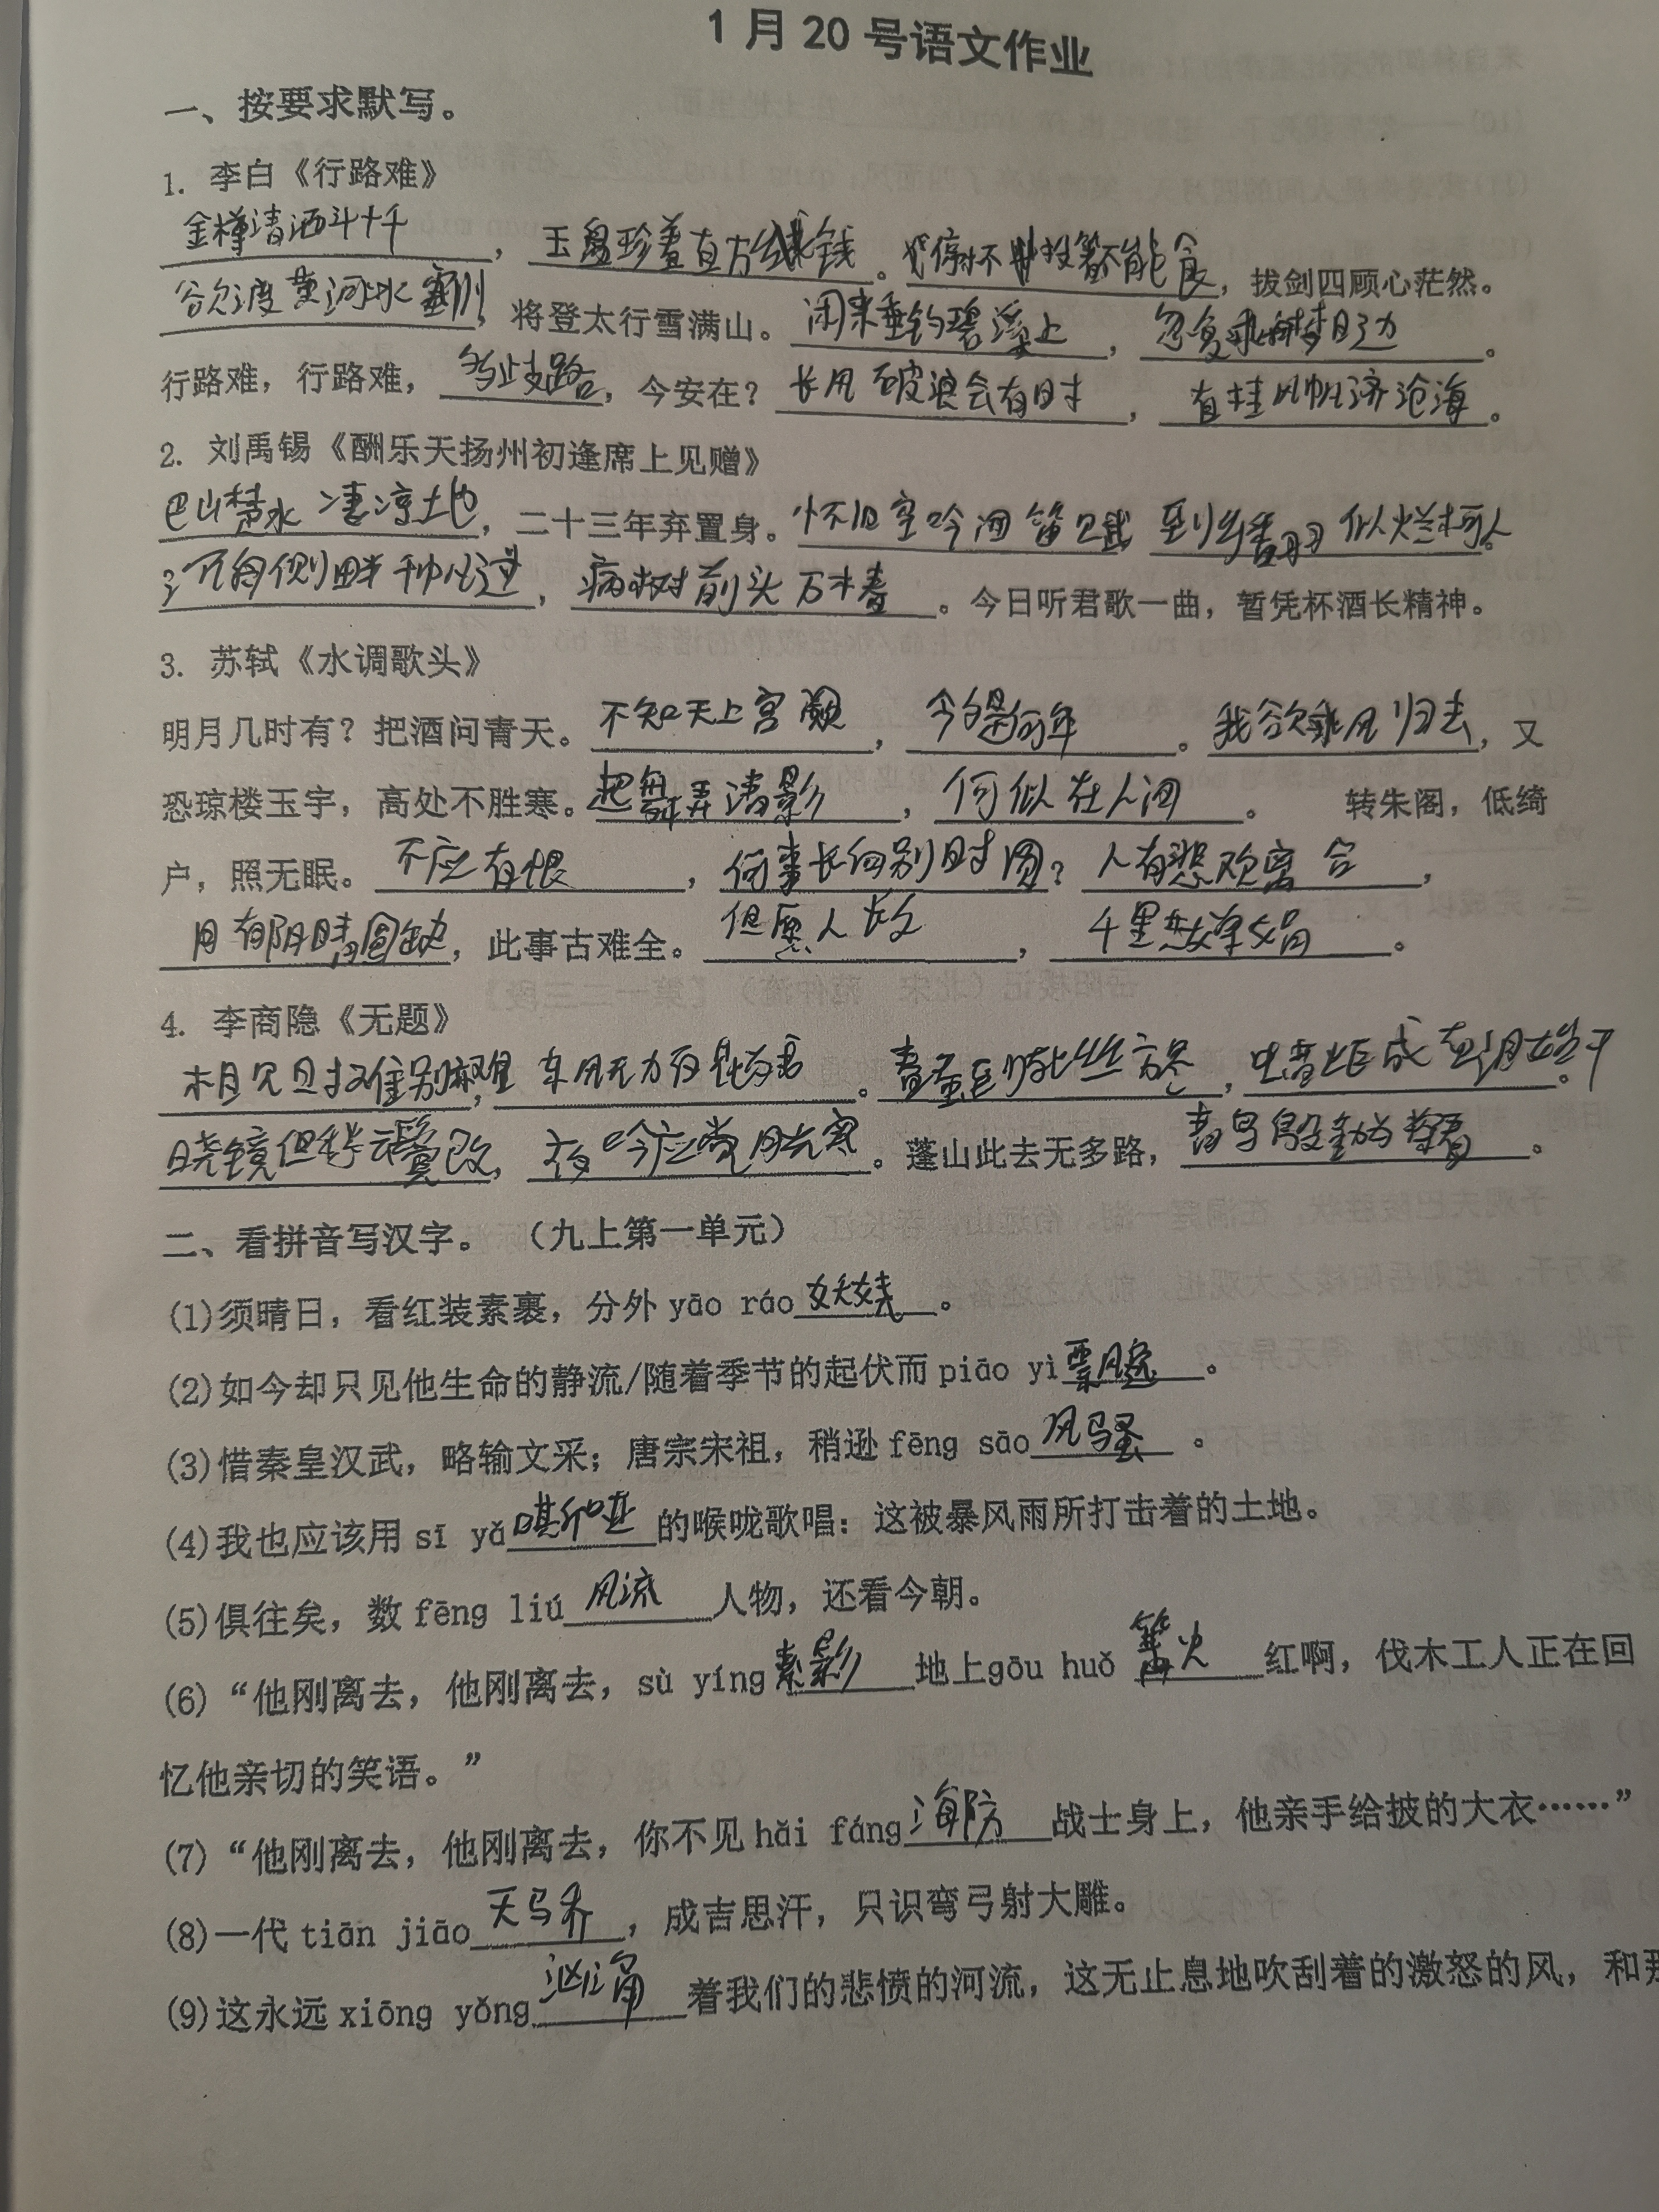 1月20号语文作业
一、按要求默写。
1. 李白《行路难》
金樽清酒斗十千，玉盘珍羞直万钱。停杯投箸不能食，拔剑四顾心茫然。
欲渡黄河冰塞川，将登太行雪满山。闲来垂钓碧溪上，忽复乘舟梦日边。
行路难，行路难，多歧路，今安在？长风破浪会有时，直挂云帆济沧海。
2. 刘禹锡《酬乐天扬州初逢席上见赠》
巴山楚水凄凉地，二十三年弃置身。怀旧空吟闻笛赋 到乡翻似烂柯人。
沉舟侧畔千帆过，病树前头万木春。今日听君歌一曲，暂凭杯酒长精神。
3. 苏轼《水调歌头》
明月几时有？把酒问青天。不知天上宫阙，今夕是何年。我欲乘风归去，又
恐琼楼玉宇，高处不胜寒。起舞弄清影，何似在人间。 转朱阁，低绮
户，照无眠。不应有恨，何事长向别时圆？人有悲欢离合，
月有阴晴圆缺，此事古难全。但愿人长久，千里共婵娟。
4. 李商隐《无题》
相见时难别亦难，东风无力百花残。春蚕到死丝方尽，蜡炬成灰泪始干。
晓镜但愁云鬓改，夜吟应觉月光寒。蓬山此去无多路，青鸟殷勤为探看。
二、看拼音写汉字。（九上第一单元）
(1)须晴日，看红装素裹，分外 yāo ráo 妖娆。
(2)如今却只见他生命的静流/随着季节的起伏而 piāo yì 飘逸。
(3)惜秦皇汉武，略输文采；唐宗宋祖，稍逊 fēng sāo 风骚。
(4)我也应该用 sī yǎ 嘶哑的喉咙歌唱：这被暴风雨所打击着的土地。
(5)俱往矣，数 fēng liú 风流人物，还看今朝。
(6)“他刚离去，他刚离去，sù yíng 素影地上 gōu huǒ 篝火红啊，伐木工人正在回
忆他亲切的笑语。”
(7)“他刚离去，他刚离去，你不见 hǎi fáng 海防战士身上，他亲手给披的大衣……”
(8)一代 tiān jiāo 天骄，成吉思汗，只识弯弓射大雕。
(9)这永远 xiōng yǒng 汹涌着我们的悲愤的河流，这无止息地吹刮着的激怒的风，和那